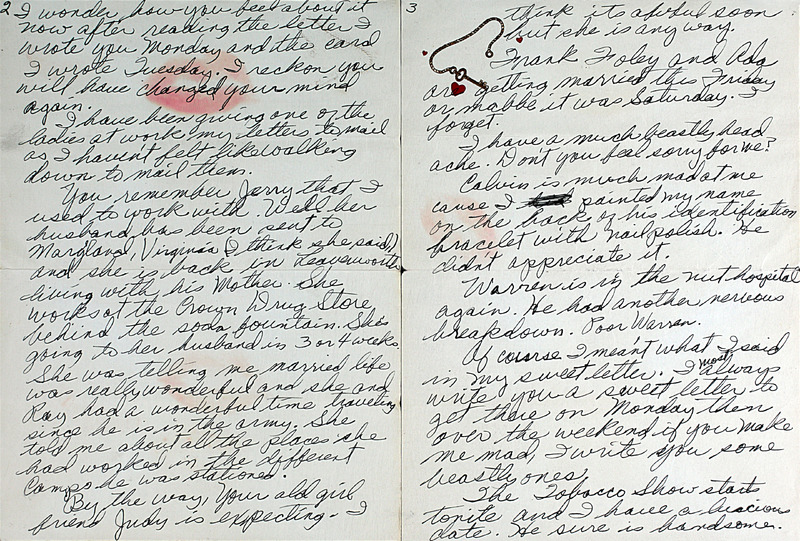 2
I wonder how you feel about it
now after reading the letter I
wrote you Monday and the card
I wrote Tuesday. I reckon you
will have changed your mind
again.
I have been giving one of the
ladies at work my letters to mail
as I havent felt like walking
down to mail them.
You remember Jerry that I
used to work with. Well her
husband has been sent to
Maryland, Virginia (I think she said,)
and she is back in Leavenworth
living with his Mother. She
works at the Crown Drug Store
behind the soda fountain. She's
going to her husband in 3 or 4 weeks.
She was telling me married life
was really wonderful and she and
Ray had a wonderful time traveling
since he is in the army. She
told me about all the places she
had worked in the different
Camps he was stationed.
By the way, your old girl
friend Judy is expecting - I
3
think its awful soon
but she is any way.
Frank Foley and Ada
are getting married this Friday
or mabbe it was Saturday. I
forget.
I have a much beastly head
ache. Don't you feel sorry for me?
Calvin is much mad at me
cause I painted my name
on the back of his identification
bracelet with nail polish. He
didn't appreciate it.
Warren is in the nut hospital
again. He had another nervous
breakdown. Poor Warren.
Of course I meant what I said
in my sweet letter. I most always
write you a sweet letter to
get there on Monday then
over the weekend if you make
me mad, I write you some
beastly ones.
The Tobacco Show starts
tonite and I have a luscious
date. He sure is handsome.